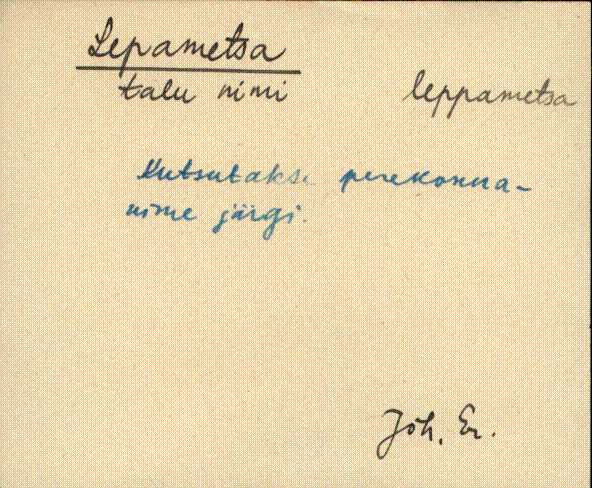 Lepametsa
talu nimi leppametsa
Kutsutakse perekonna-
nime järgi.
Jõh. Er.